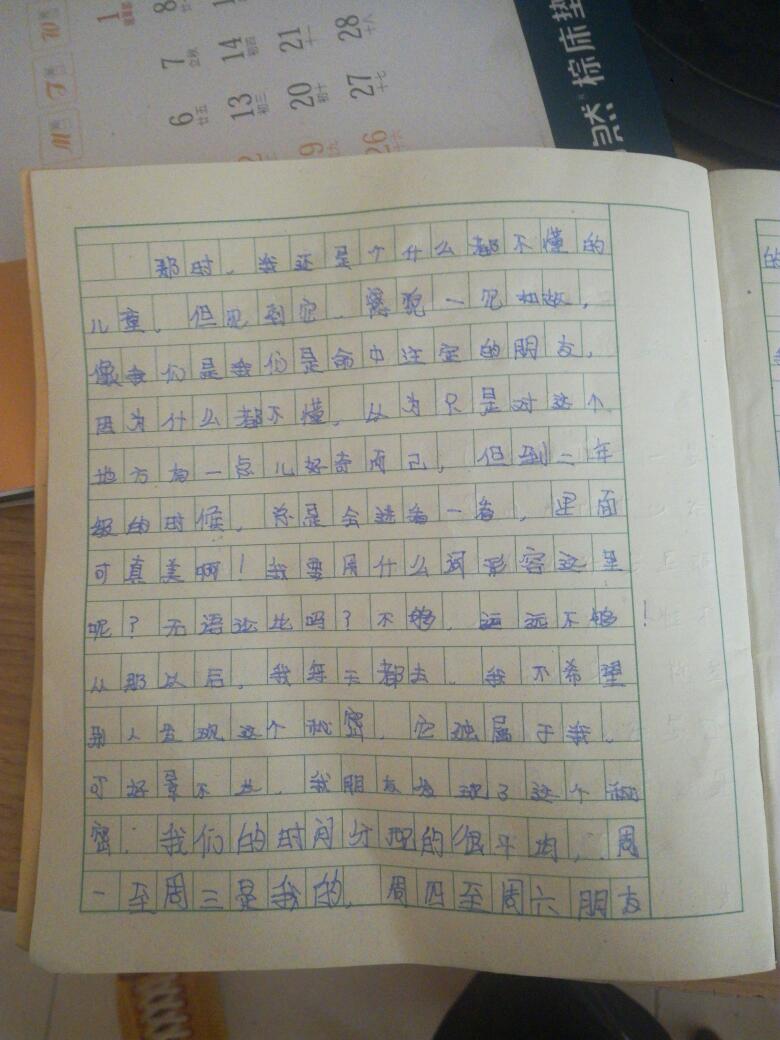 1 8
7 立秋 14 初四 21 十一 28 十八
6 廿五 13 初三 20 初十 27 十七
26 十六
棕床垫
那时，我还是个什么都不懂的
儿童，但见到它，一见如故，
像我们是我们是命中注定的朋友，
因为什么都不懂，认为只是对这个
地方有一点儿好奇而已，但到二年
级的时候，总是会进去看，里面
可真美啊！我要用什么词形容这里
呢？无语论比吗？不够，远远不够！
从那以后，我每天都去，我不希望
别人发现这个秘密，它独属于我。
可好景不长，我朋友发现了这个秘
密，我们的时间分配的很平均，周
一至周三是我的，周四至周六朋友
的